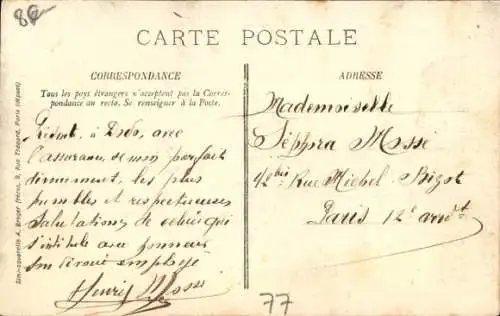 86
CARTE POSTALE
CORRESPONDANCE
Tous les pays étrangers n'acceptent pas la Corres-
pondance au recto. Se renseigner à la Poste.
à Dodo, avec
l'assurance de mon parfait
dévouement, les plus
humbles et respectueuses
salutations de celui qui
s'intitule avec honneur
son dévoué employé
Henri Mossé
ADRESSE
Mademoiselle
Séphra Mossé
1/2 bis Rue Michel Bizot
Paris 12e arrdt
77
Simi-aquarelle A. Breger frères, 9, Rue Thénard, Paris (déposé)